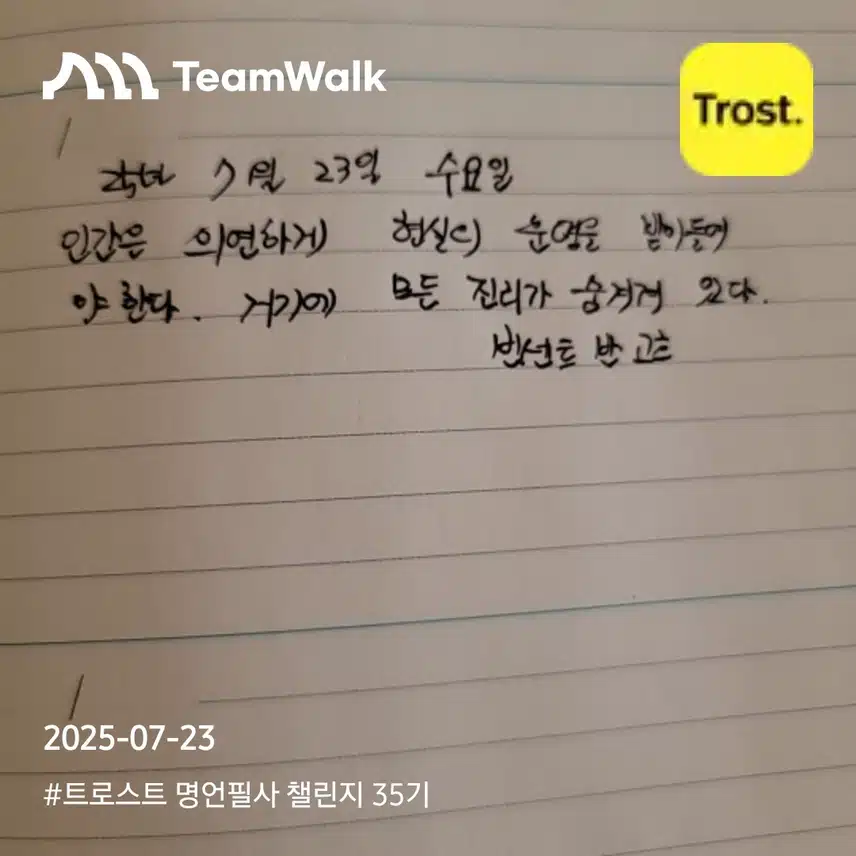 TeamWalk
Trost.
7월 23일 수요일
인간은 의연하게 현실의 운명을 받아들여
야 한다. 거기에 모든 진리가 숨겨져 있다.
빈센트 반 고흐
2025-07-23
#트로스트 명언필사 챌린지 35기